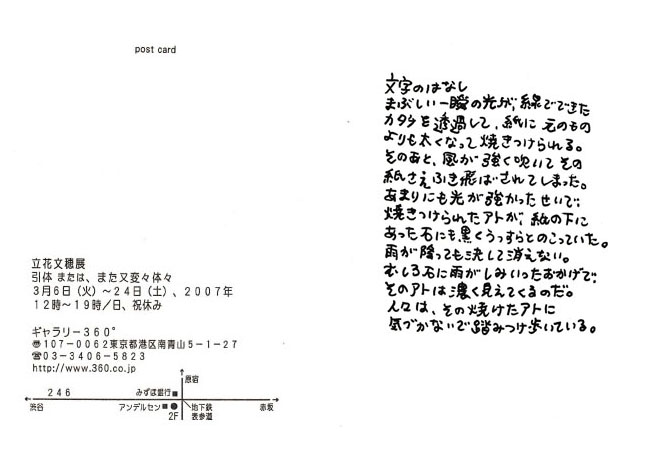 post card
立花文穂展
引体 または、また又変々体々
3月6日（火）〜24日（土）、2007年
12時〜19時／日、祝休み
ギャラリー360°
〠107-0062東京都港区南青山5-1-27
☎03-3406-5823
http://www.360.co.jp
原宿
246
みずほ銀行
渋谷
アンデルセン
2F
地下鉄
表参道
赤坂
文字のはなし
まぶしい一瞬の光が、線でできた
カタチを透過して、紙に元のもの
よりも太くなって焼きつけられる。
そのあと、風が強く吹いてその
紙さえふき飛ばされてしまった。
あまりにも光が強かったせいで、
焼きつけられたアトが、紙の下に
あった石にも黒くうっすらとのこっていた。
雨が降っても決して消えない。
むしろ石に雨がしみいったおかげで、
そのアトは濃く見えてくるのだ。
人々は、その焼けたアトに
気づかないで踏みつけ歩いている。